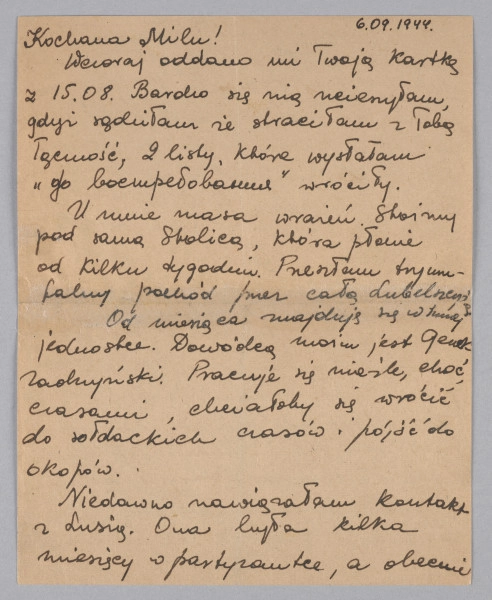 6.09.1944.
Kochana Milu!
Wczoraj oddano mi Twoją kartkę
z 15.08. Bardzo się nią ucieszyłam,
gdyż sądziłam że straciłam z Tobą
łączność, 2 listy, które wysłałam
„do wróciły.
U mnie masa wrażeń. Stoimy
pod samą Stolicą, która płonie
od kilku tygodni. Przeszłam tryum-
falny pochód przez całą Lubelszczyznę
Od miesiąca znajduję się w innej
jednostce. Dowódcą moim jest
Pracuje się nieźle, choć
czasami, chciałoby się wrócić
do sołdackich czasów i pójść do
okopów.
Niedawno nawiązałam kontakt
z Lusią. Ona była kilka
miesięcy w partyzantce, a obecnie